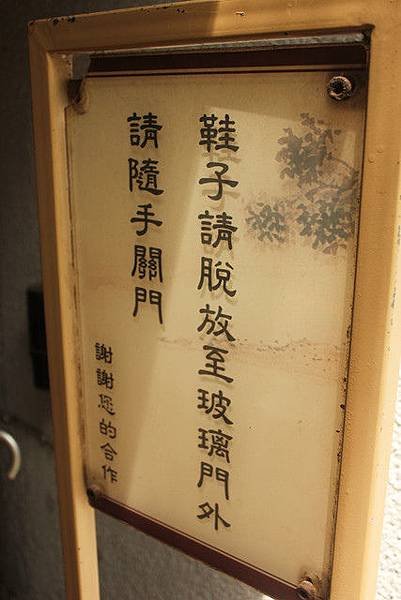 鞋子請脫放至玻璃門外
請隨手關門
謝謝您的合作